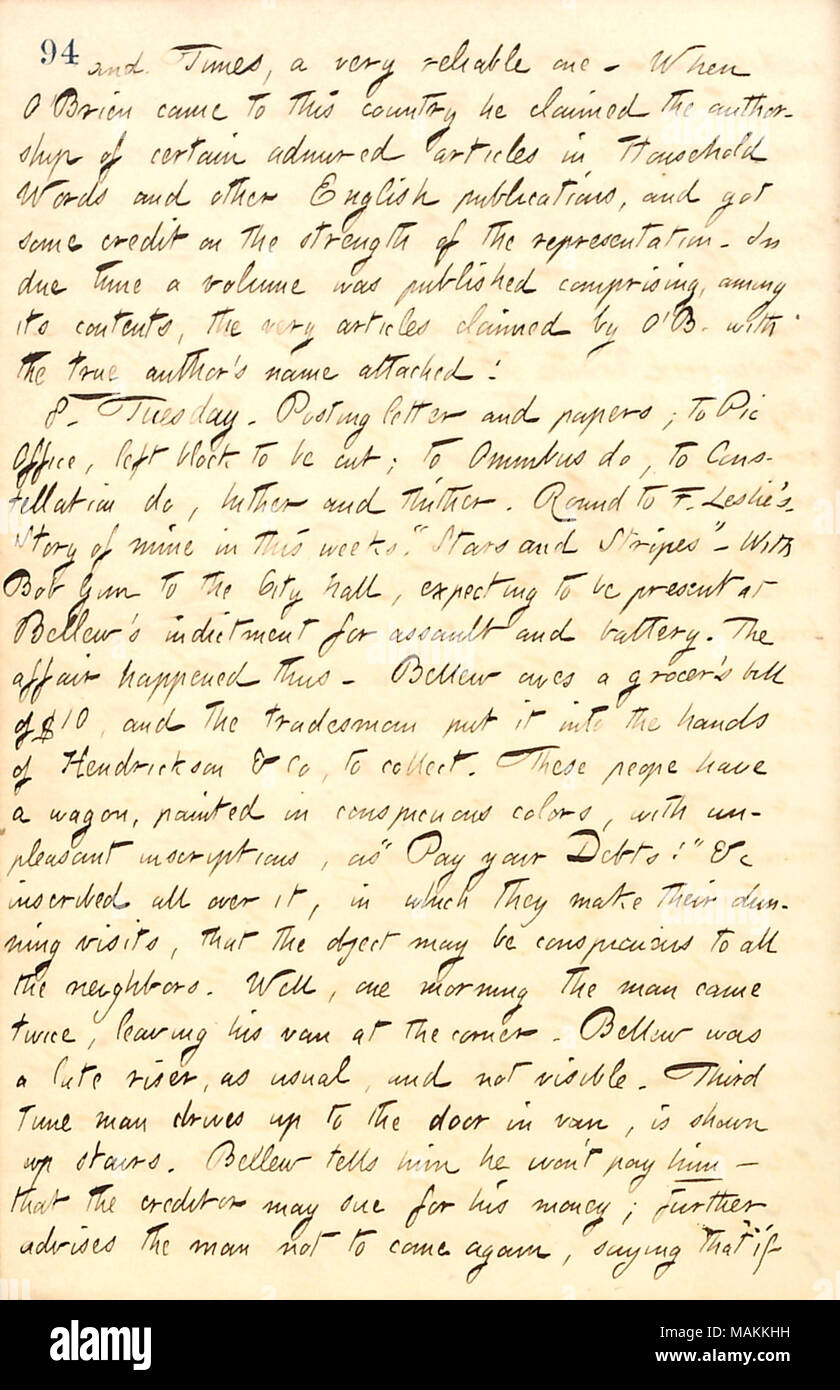 94
and Times, a very reliable one - When
O'Brien came to this country he claimed the author-
ship of certain admired articles in Household
Words and other English publications, and got
some credit on the strength of the representation - In
due time a volume was published comprising, among
its contents, the very articles claimed by O'B. with
the true author's name attached!
8. Tuesday. Posting letter and papers; to Pic
Office, left block to be cut; to Omnibus do, to Cons-
tellation do, hither and thither. Round to F. Leslie's.
Story of mine in this weeks "Stars and Stripes" - With
Bob Gun to the City hall, expecting to be present at
Bellew's indictment for assault and battery. The
affair happened thus - Bellew owes a grocer's bill
of $10, and the tradesman put it into the hands
of Hendrickson & Co, to collect. These peope have
a wagon, painted in conspicuous colors, with un-
pleasant inscriptions, as "Pay your Debts!" &c
inscribed all over it, in which they make their dun-
ning visits, that the object may be conspicuous to all
the neighbors. Well, one morning the man came
twice, leaving his van at the corner. Bellew was
a late riser, as usual, and not visible. Third
time man drives up to the door in van, is shown
up stairs. Bellew tells him he won't pay him -
that the creditor may sue for his money; further
advises the man not to come again, saying that "if
alamy
Image ID: MAKKHH
www.alamy.com